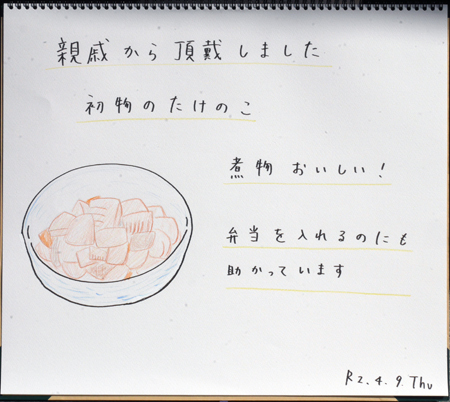 親戚から頂戴しました
初物のたけのこ
煮物 おいしい!
弁当を入れるのにも
助かっています
R2.4.9.Thu